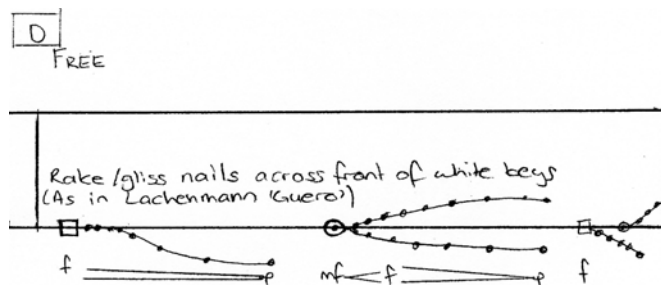 D
FREE
Rake/gliss nails across front of white keys
(As in Lachenmann 'Guero')
f p mf f p f